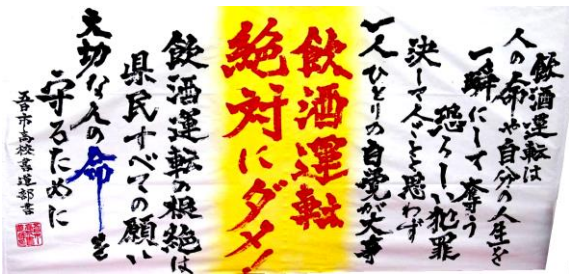 飲酒運転は
人の命や自分の人生を
一瞬にして奪う
恐ろしい犯罪
決して人ごとと思わず
一人ひとりの自覚が大事
飲酒運転
絶対にダメ!
飲酒運転の根絶は
県民すべての願い
大切な人の命を
守るために
吾市高校書道部書